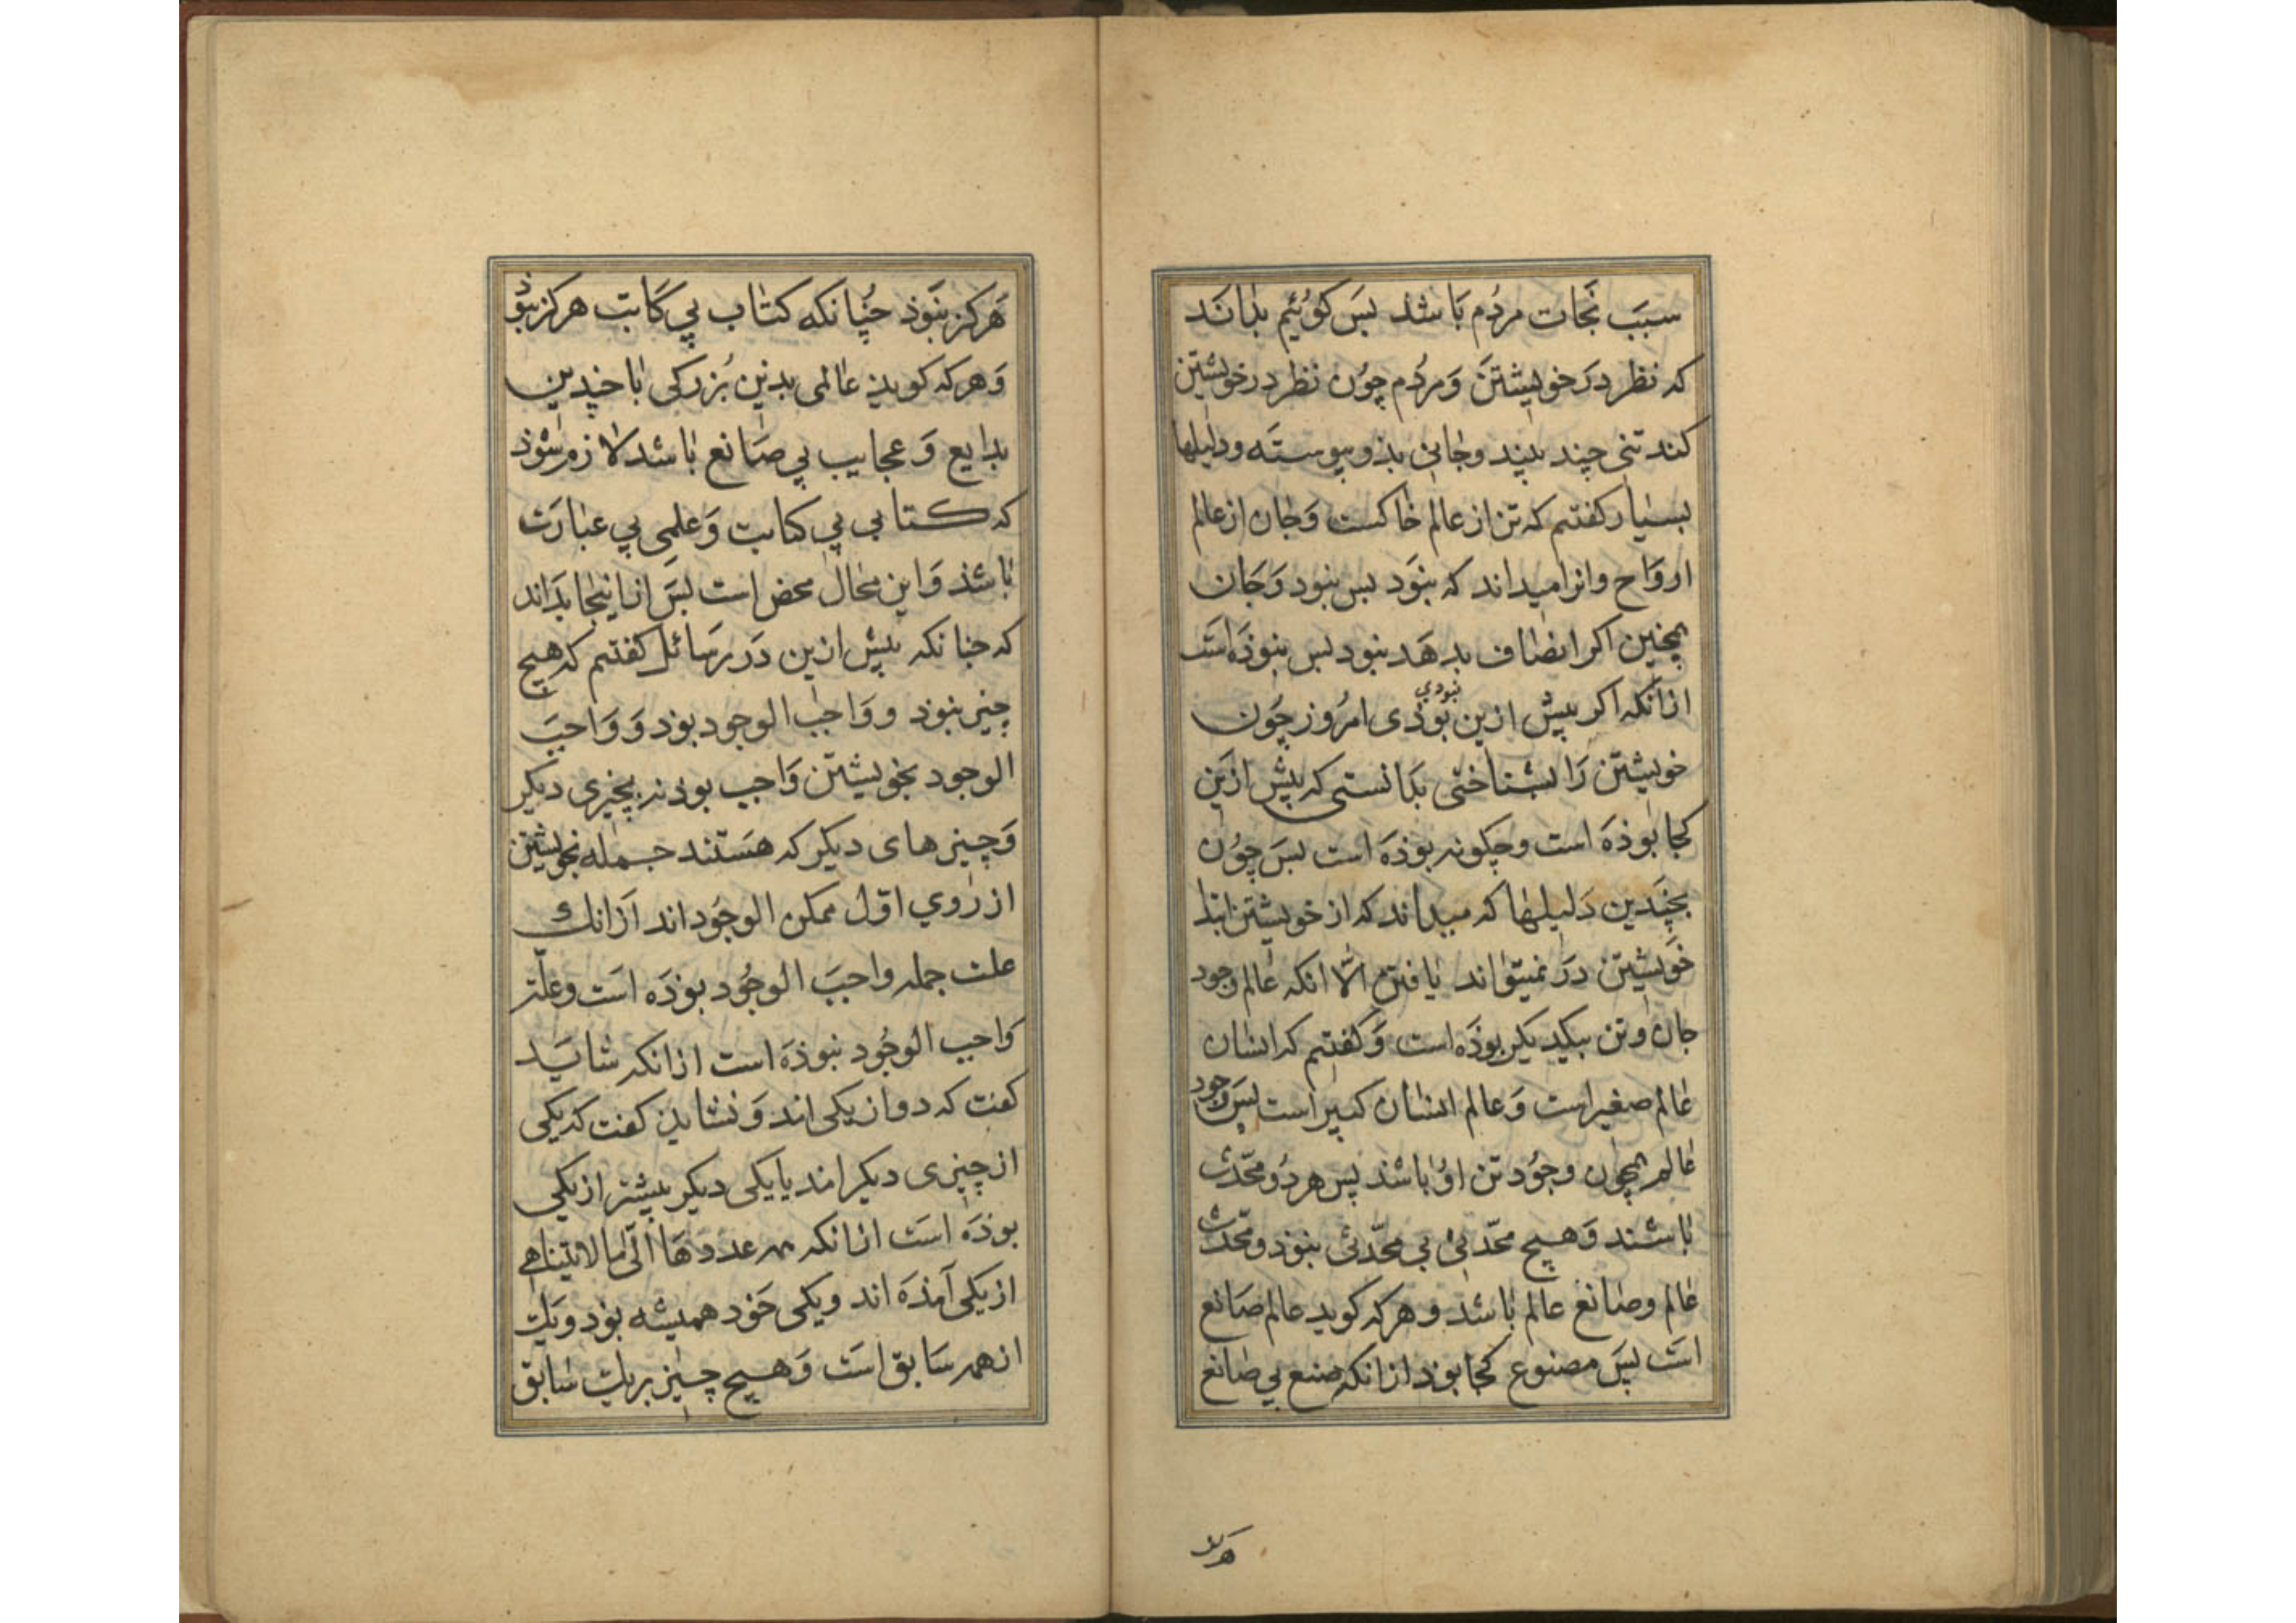 سبَب نَجات مردُم بَا شد بسَ کوئیم بدانَد
که نظر درَ خویشتَن وَ مردُم چوُن نظر در خویشتن
کند تنی چند بیند وجَانی بذو پیوستَه ودلیلها
بسیار کفتیم که تن از عالم خاکست وَجان از عالم
اروَاح وانرا میداند که بنوَد بس ببود وَجَان
همچنین اکر انصاف بدهَد بنود بس ببوذهَ است
ازانکه اکر بیش ازین بوَذی امرُوز چوُن
نبودی
خویشتن رَا بشناختی بدَانستی که بیش ازیَن
کجا بوذهَ است وچکونه بوذهَ است بسَ چوُن
بچَندین دَلیلها که میداند که از خویشتن ابتدا
خوَیشتن درَ نمیتوَاند یافتن الّا انکه عَالم وجود
جان وتن بیکدیکر بوذهَ است وَکفتیم که انسان
عَالم صغیر است وَعالم انسان کبیر است بسَ وجود
عَالم همچون وجوُد تن اوُ باشذ پس هر دوُ محَدث
باشند وَهیچ محَدثی بی محدّثی بنوذ ومحَدث
عَالم وصَانع عالم باشد وهرکه کوید عالم صَانع
است پسَ مصنوع کجا بوذ ازانکه صنع بی صانع
هر
هَرکز بنوَذ چنُانکه کتاب بی کَاتب هرکز نبوَذ
وَهرکه کویذ عالمی بدین بُزرکی با چندین
بدایع وَعجایب بی صَانع باشد لازم شوذ
که کتابی بی کتابت وَعلمی بی عبارَت
باشذ وَاین محَال محض است بسَ ازاینجا بدَاند
که جنانکه بیش ازین دَر رسَائل کفتیم که هیچ
چیز بنوذ ووَاجب الوجود بوَذ وَوَاجبَ
الوجود بخویشتن وَاجب بوذ نه بچیزی دیکر
وَچیزهای دیکر که هسَتند جمله بخویشتن
از رُوی اوّل ممکن الوجوُد اند ازَانک
علت جمله واجبَ الوجوُد بوذهَ است وعلّت
وَاجب الوجوُد نبوذهَ است ازانکه شایَد
کفت که دو از یکی اند وَنشایذ کفت که یکی
از چیزی دیکر اند یا یکی دیکر بیشتر از یکی
بوذهَ است ازانکه همه عددهَا الَی ما لا یتناهی
از یکی آمذهَ اند ویکی خوَد همیشه بوَذ ویک
از همه سَابق است وَهیچ چیز بر یک سابق